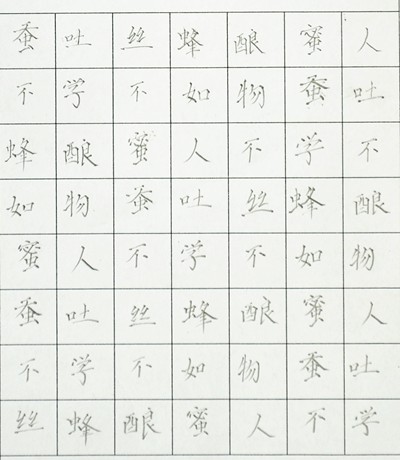 蚕吐丝蜂酿蜜人
不学不如物蚕吐
蜂酿蜜人不学不
如物蚕吐丝蜂酿
蜜人不学不如物
蚕吐丝蜂酿蜜人
不学不如物蚕吐
丝蜂酿蜜人不学